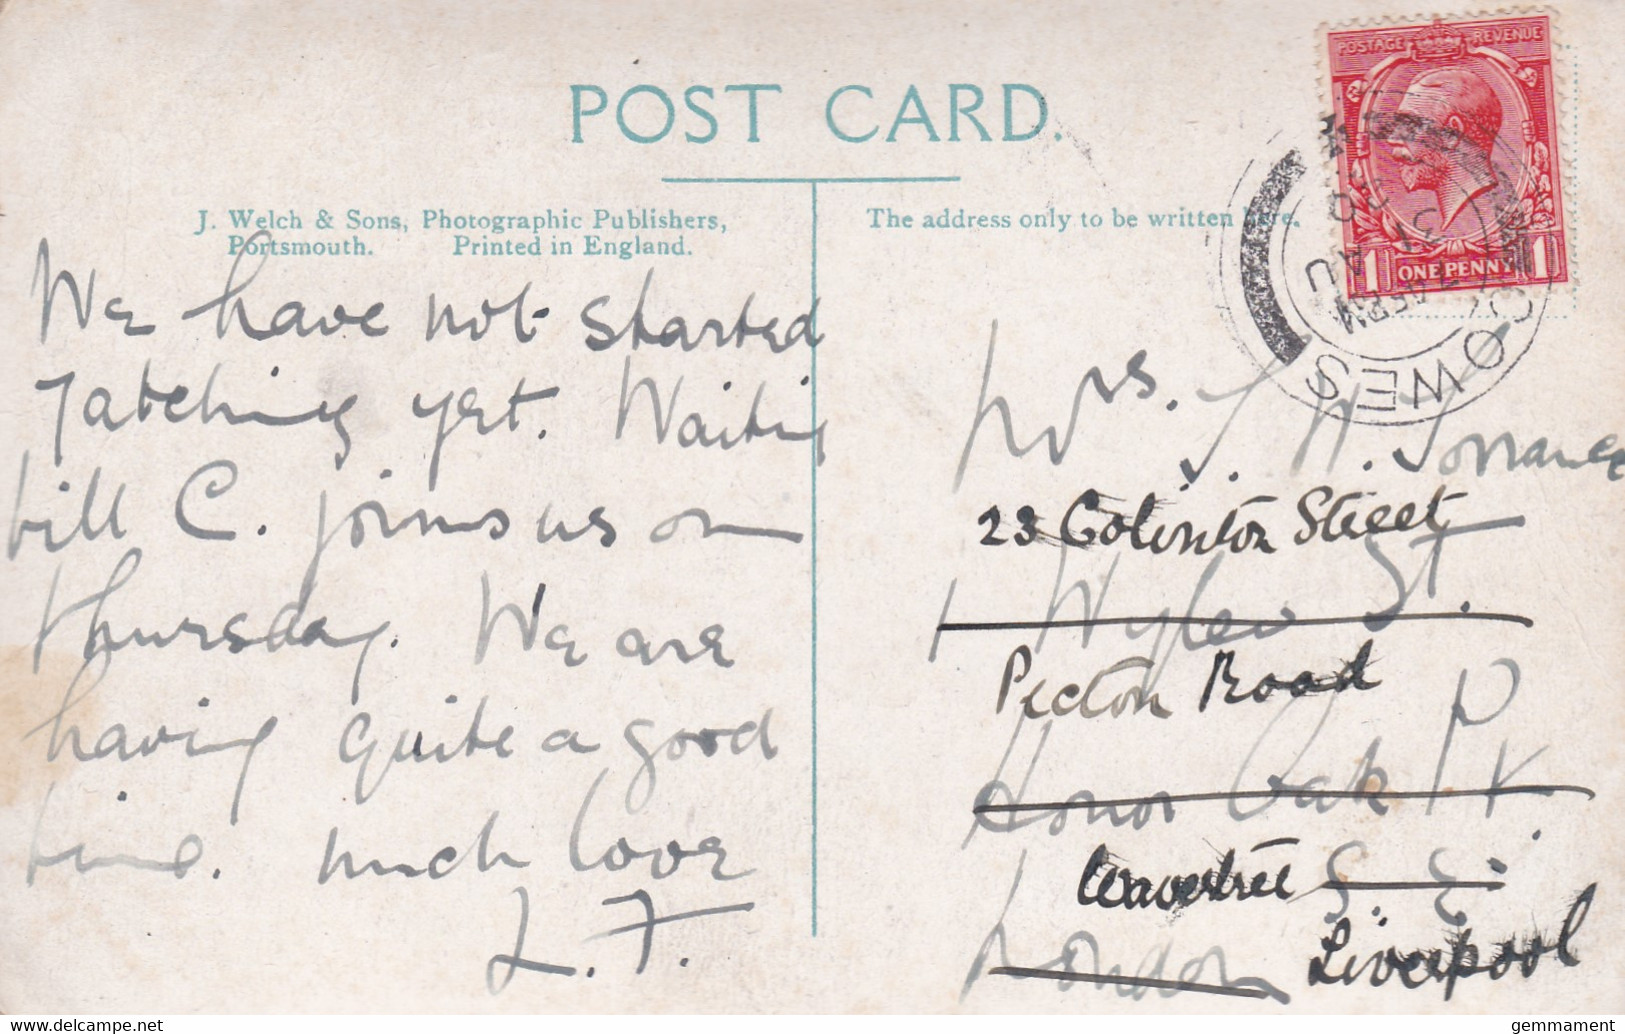 POST CARD.
J. Welch & Sons, Photographic Publishers,
Portsmouth. Printed in England.
The address only to be written here.
POSTAGE REVENUE
1 ONE PENNY 1
COWES
AU
We have not started
Yatching yet. Waiting
till C. joins us on
Thursday. We are
having quite a good
time. Much love
L. F.
Mrs. J. H. Torrance
23 Colinton Street
1 Wyleu St.
Picton Road
Honor Oak Pk.
Wavertree S. E.
London Liverpool
gemmament